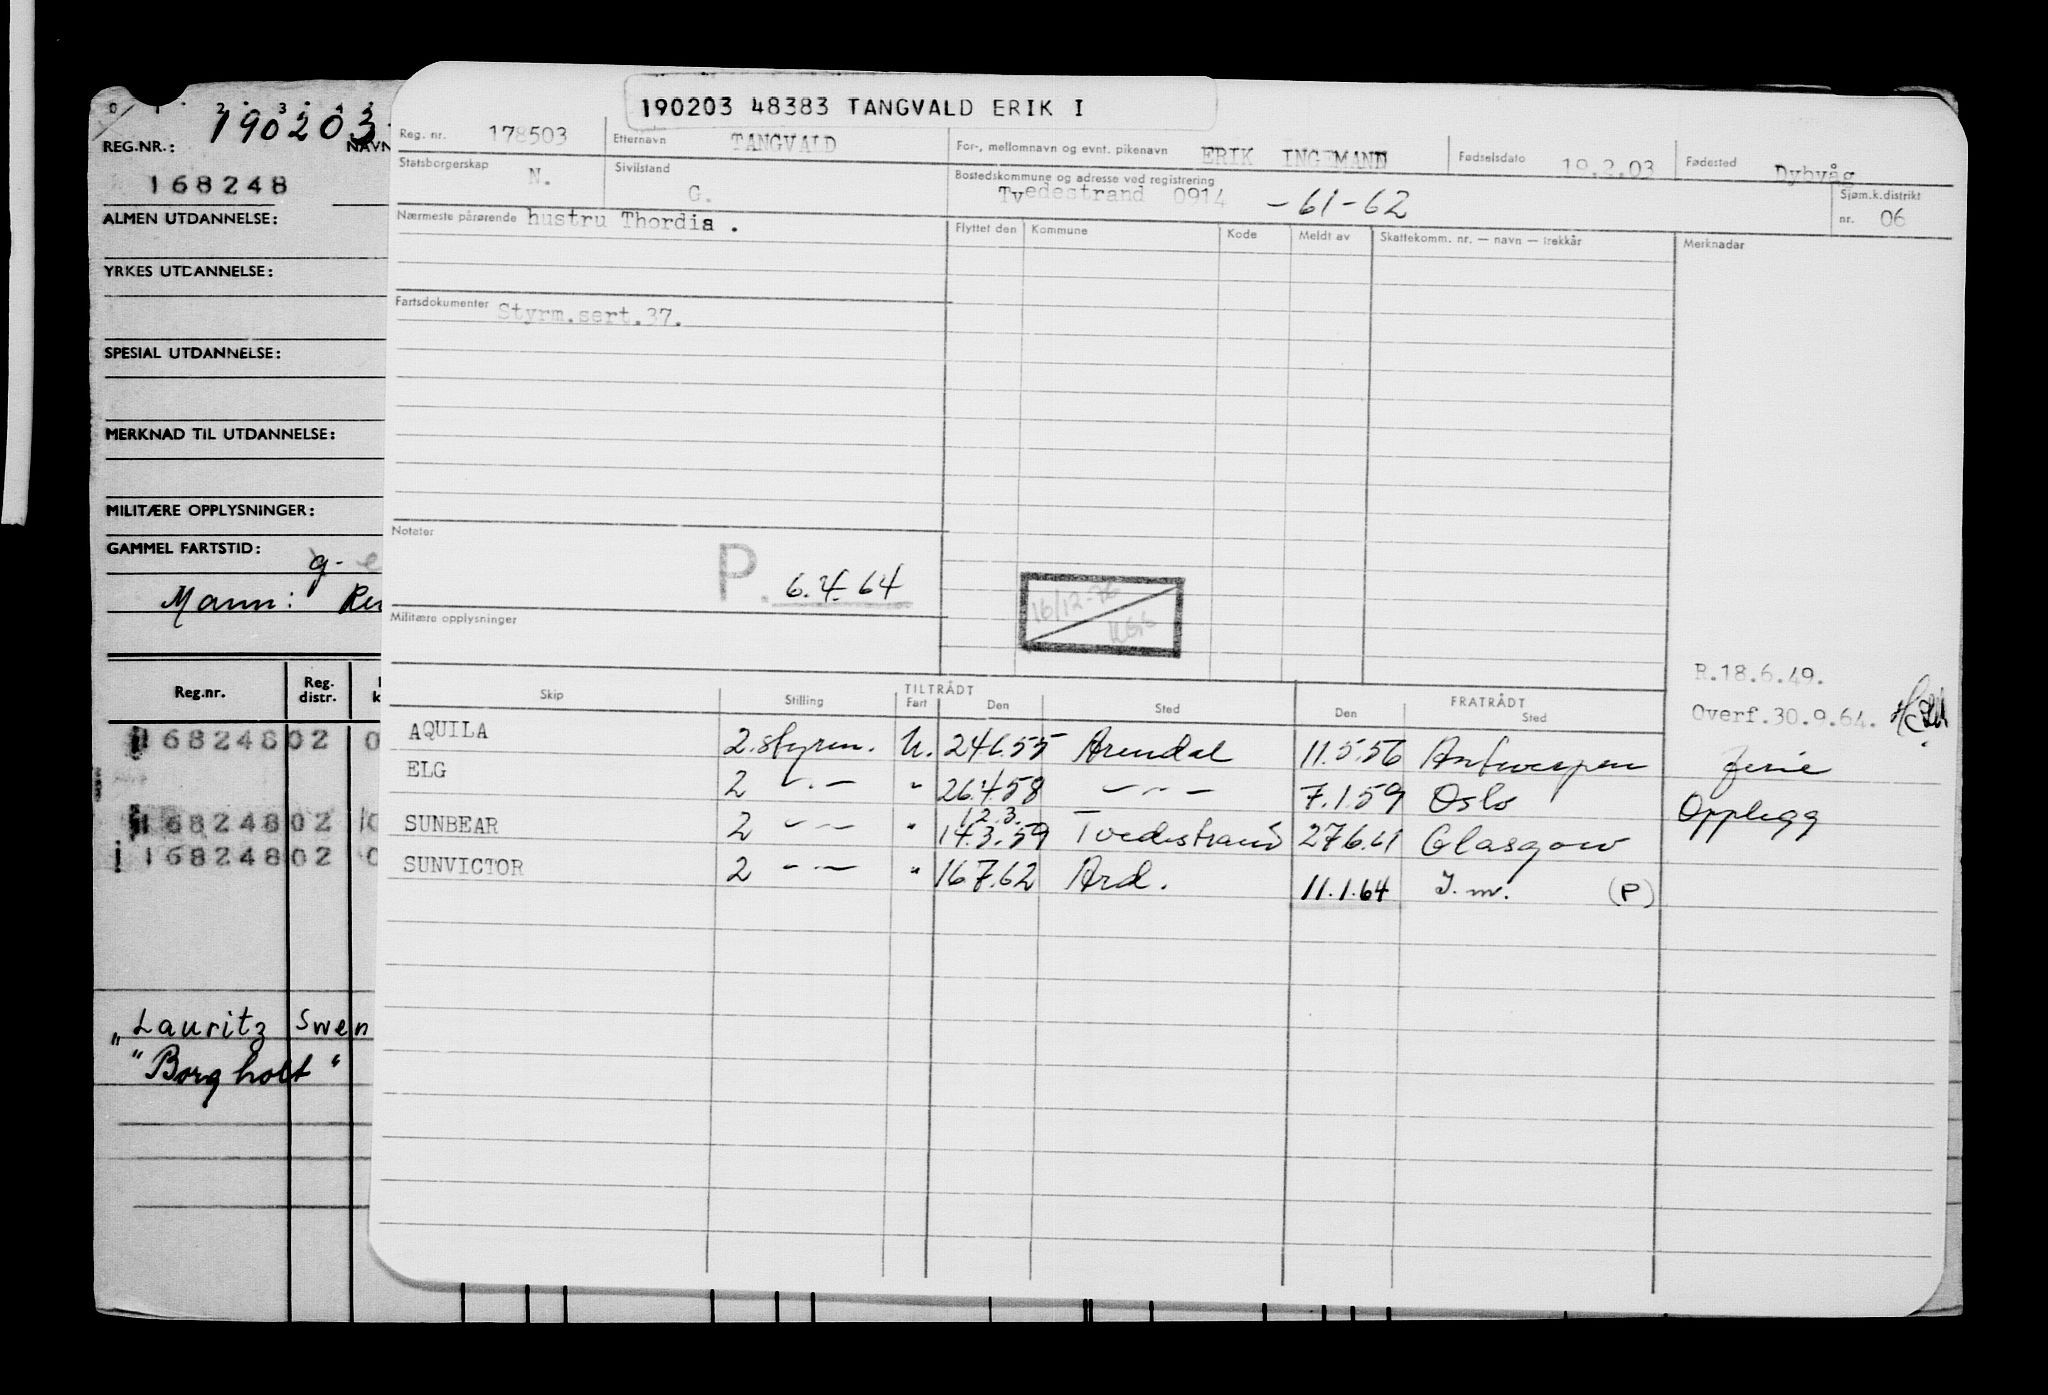 190203 48383 TANGVALD ERIK I
Reg. nr. 178503 Etternavn TANGVALD For-, mellomnavn og evnt. pikenavn ERIK INGEMAND Fødselsdato 19.2.03 Fødested Dybvåg
Statsborgerskap N. Sivilstand G. Bostedskommune og adresse ved registrering Tvedestrand 0914 -61-62 Sjøm.k.distrikt nr. 06
Nærmeste pårørende hustru Thordis . Flyttet den Kommune Kode Meldt av Skattekomm. nr. — navn — trekkår Merknader
Fartsdokumenter Styrm.sert.37.
Notater
P. 6.4.64
16/12-76
Militære opplysninger
R.18.6.49.
Overf.30.9.64.
Skip Stilling TILTRÅDT Fart Den Sted FRATRÅDT Den Sted
AQUILA 2.styrm. U. 24.6.55 Arendal 11.5.56 Antwerpen Ferie
ELG 2 -"- " 26.4.58 -"- 7.1.59 Oslo Opplegg
12.3.
SUNBEAR 2 -"- " 14.3.59 Tvedestrand 27.6.61 Glasgow
SUNVICTOR 2 -"- " 16.7.62 Ard. 11.1.64 I.m. (P)
0 1 2 3 4
190203
REG.NR.: NAVN
168248
ALMEN UTDANNELSE:
YRKES UTDANNELSE:
SPESIAL UTDANNELSE:
MERKNAD TIL UTDANNELSE:
MILITÆRE OPPLYSNINGER:
GAMMEL FARTSTID:
g-
Mann:
Reg.nr. Reg. distr.
16824802 0
16824802
16824802 0
"Lauritz Swen
"Borgholt"